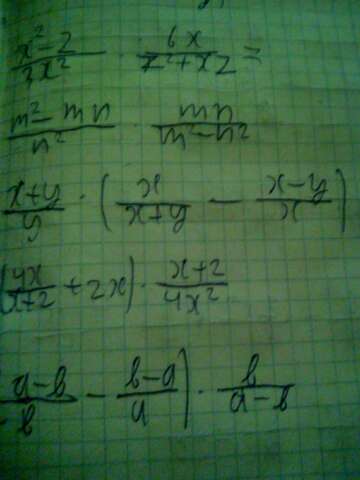 (x²-2)/(3x²) · (6x)/(x²+xz) =
(m²-mn)/(n²) · (mn)/(m²-n²)
(x+y)/(y) · ((x)/(x+y) - (x-y)/(x))
((4x)/(x+2) + 2x) · (x+2)/(4x²)
(a-b)/(b) - (b-a)/(a)) · (b)/(a-b)